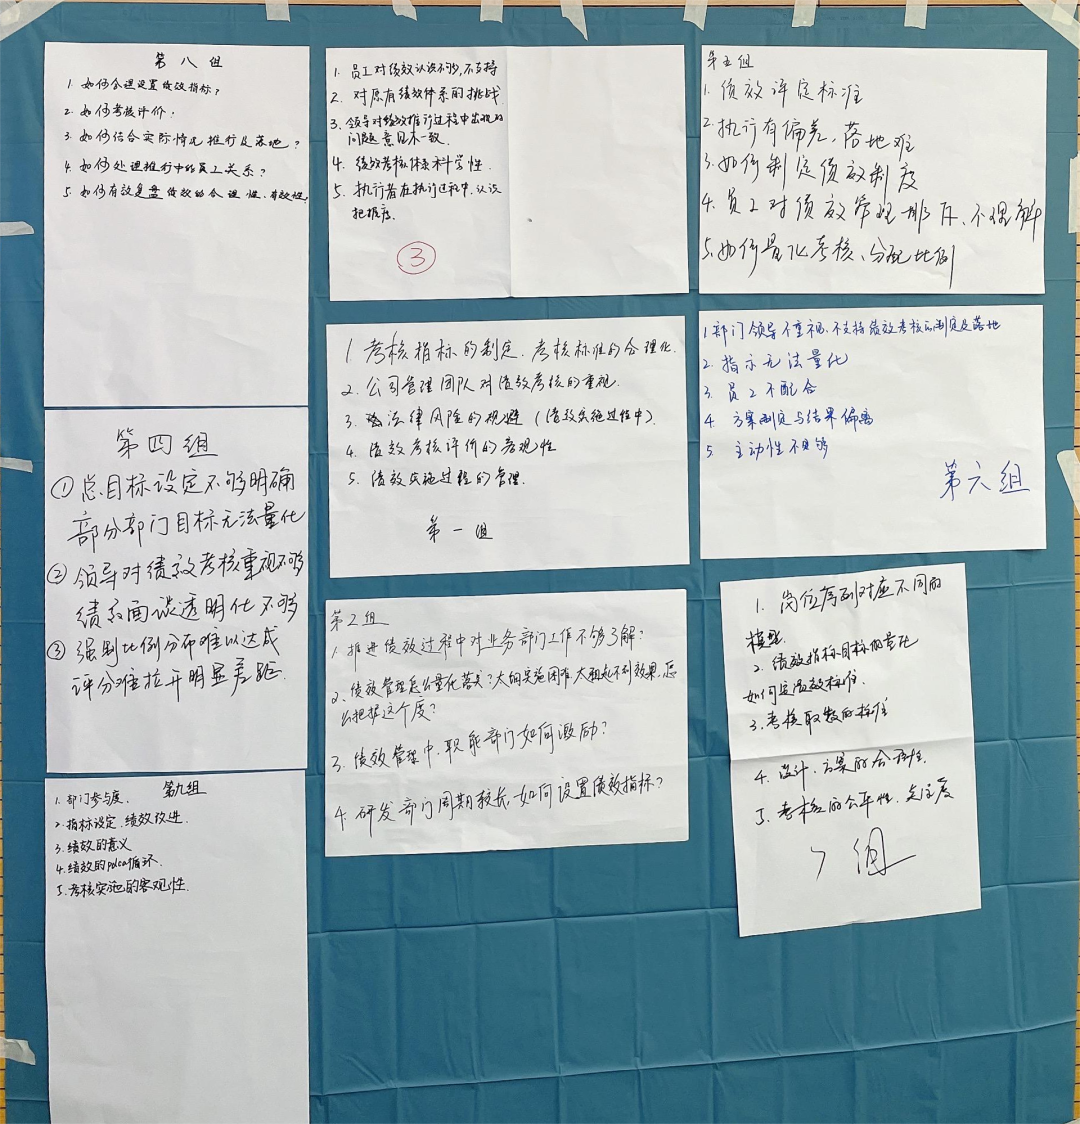 第八组
1. 如何合理设置绩效指标?
2. 如何考核评价?
3. 如何结合实际情况推行及落地?
4. 如何处理推行中的员工关系?
5. 如何有效复盘绩效的合理性、有效性
第四组
① 总目标设定不够明确
部分部门目标无法量化
② 领导对绩效考核重视不够
绩效面谈透明化不够
③ 强制比例分布难以达成
评分难拉开明显差距.
第九组
1. 部门参与度.
2. 指标设定.绩效改进.
3. 绩效的意义
4. 绩效的pdca循环.
5. 考核实施的客观性.
1. 员工对绩效认识不够,不支持
2. 对原有绩效体系的挑战.
3. 领导对绩效推行过程中出现的
问题意见不一致.
4. 绩效考核体系科学性.
5. 执行者在执行过程中,认识
把握度.
③
1. 考核指标的制定.考核标准的合理化.
2. 公司管理团队对绩效考核的重视.
3. 法律风险的规避(绩效实施过程中).
4. 绩效考核评价的客观性
5. 绩效实施过程的管理.
第一组
第2组
1. 推进绩效过程中对业务部门工作不够了解?
2. 绩效管理怎么量化落实?太细实施困难,太粗起不到效果,怎
么把握这个度?
3. 绩效管理中,职能部门如何激励?
4. 研发部门周期较长,如何设置绩效指标?
第五组
1. 绩效评定标准
2. 执行有偏差,落地难
3. 如何制定绩效制度
4. 员工对绩效管理排斥、不理解
5. 如何量化考核、分配比例
1. 部门领导不重视、不支持绩效考核的制定及落地
2. 指示无法量化
3. 员工不配合
4. 方案制定与结果偏离
5. 主动性不够
第六组
1. 岗位序列对应不同的
模型.
2. 绩效指标目标的量化
如何定绩效标准.
3. 考核取数的标准
4. 设计.方案的合理性.
5. 考核的公平性.关注度
7组